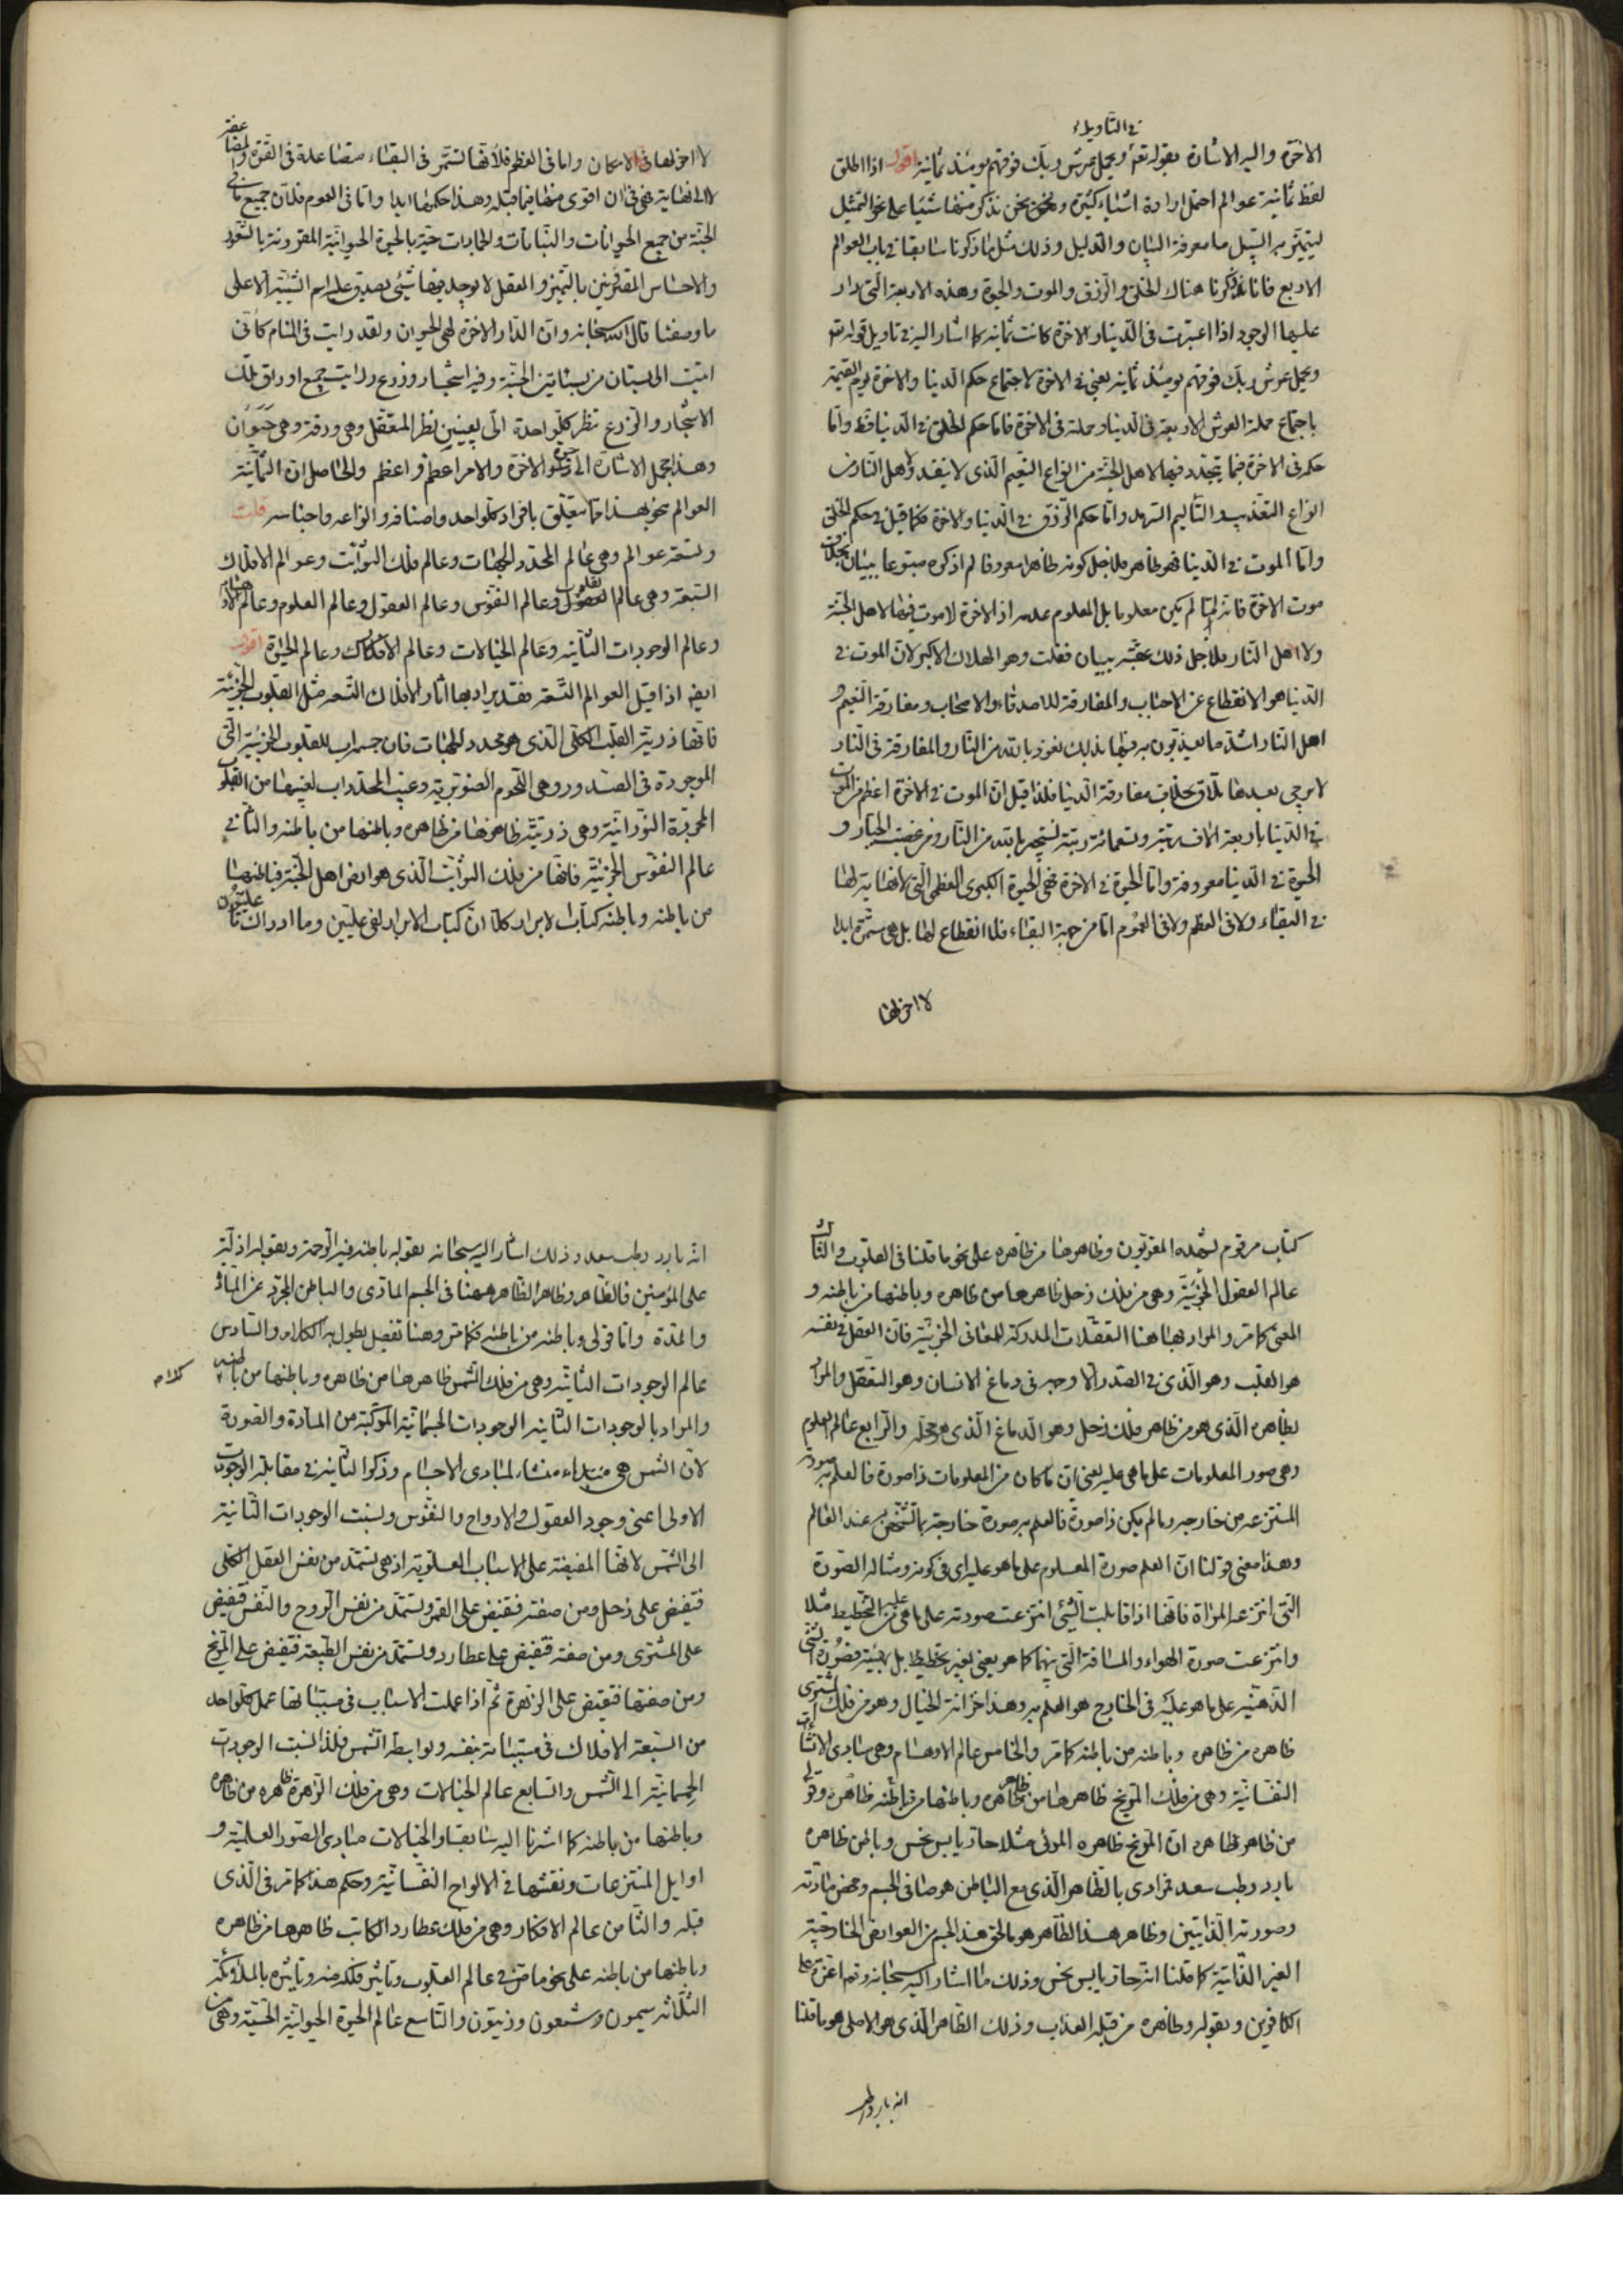 في التاويل
الاخرة واليه الاشارة بقوله تعم ويحمل عرش ربك فوقهم يومئذ ثمانية اقول اذا اطلق
لفظ ثمانية عوالم احتمل ارادة اشياء كثيرة ونحن نذكر منها شيئا على نحو التمثيل
ليتميز به السبيل ما معرفة البيان والدليل وذلك مثل ما ذكرنا سابقا في باب العوالم
الاربع فانا ذكرنا هناك الخلق والرزق والموت والحيوة وهذه الاربعة التى دار
عليها الوجود اذا اعتبرت فى الدنيا والاخرة كانت ثمانية كما اشار اليه في تاويل قوله تعم
ويحمل عرش ربك فوقهم يومئذ ثمانية يعني في الاخرة لاجتماع حكم الدنيا والاخرة يوم القيمة
باجتماع حملة العرش الاربعة فى الدنيا وحملة فى الاخرة فاما حكم الخلق في الدنيا فظ واما
حكمه فى الاخرة فيما يتجدد فيها لاهل الجنة من انواع النعيم الذى لا ينفد ولاهل النار من
انواع التعذيب والتاليم السرمد واما حكم الرزق في الدنيا والاخرة فكما قيل في حكم الخلق
واما الموت في الدنيا فهو ظاهر فلاجل كونه ظاهرا معروفا لم اذكره متبوعا ببيان بخلاف
موت الاخرة فانه لما لم يكن معلوما بل المعلوم عدمه اذ الاخرة لا موت فيها لاهل الجنة
ولا اهل النار فلاجل ذلك عقبته ببيان فقلت وهو الهلاك الاكبر لان الموت في
الدنيا هو الانقطاع عن الاحباب والمفارقة للاصدقاء والاصحاب ومفارقة النعيم و
اهل النار اشد ما يعذبون به فيها بذلك نعوذ بالله من النار والمفارقة فى النار
لا يرجى بعدها تلاق بخلاف مفارقة الدنيا فلذا قيل ان الموت في الاخرة اعظم من الموت
في الدنيا باربعة الاف رتبة وتسعمائة رتبة نستجير بالله من النار ومن غضب الجبار و
الحيوة في الدنيا معروفة واما الحيوة في الاخرة فهى الحيوة الكبرى العظمى التى لا نهاية لها
في البقاء ولا فى العظم ولا فى العموم اما من جهة البقاء فلا انقطاع لها بل هى مستمرة ابدا
لا اخر لها
لا اخر لها فى الامكان واما فى العظم فلانها تستمر فى البقاء متضاعلة فى القوة والمضاعفة
لا الى نهاية فهى فى ان اقوى منها فيما قبله وهذا حكمها ابدا واما فى العموم فلان جميع ما في
الجنة من جميع الحيوانات والنباتات والجمادات حية بالحيوة الحيوانية المقرونة بالشعور
والاحساس المقترنين بالتميز والعقل لا يوجد فيها شيئ يصدق عليه اسم الشيئية الا على
ما وصفنا قال الله سبحانه وان الدار الاخرة لهى الحيوان ولقد رايت فى المنام كانى
اتيت الى بستان من بساتين الجنة وفيه اشجار وزرع ورايت جميع اوراق تلك
الاشجار والزرع تنظر كل واحدة الى بعينين نظر المتعقل وهى ورقة وهى حيوان
وهذا مجمل الاشارة الى حيوة الاخرة والامر اعظم واعظم والحاصل ان الثمانية
العوالم نحو بهذا مما يتعلق بافراد كل واحد واصنافه وانواعه واجناسه قلت
وتسعة عوالم وهى عالم المحدد للجهات وعالم فلك الثوابت وعوالم الافلاك
السبعة وهى عالم القلوب وعالم النفوس وعالم العقول وعالم العلوم وعالم الاوهام
وعالم الوجودات الثانية وعالم الخيالات وعالم الافكار وعالم الحيوة اقول
ايضا اذا قيل العوالم التسعة فقد يراد بها اثار الافلاك التسعة مثل القلوب الجزئية
فانها ذرية القلب الكلى الذى هو محدد الجهات فان جسمه اب للقلوب الجزئية التى
الموجودة فى الصدور وهى اللحوم الصنوبرية وغيب المحدد اب لغيبها من القلوب
المجردة النورانية وهى ذريته ظاهرها من ظاهره وباطنها من باطنه والثاني
عالم النفوس الجزئية فانها من فلك الثوابت الذى هو ارض اهل الجنة فباطنها
من باطنه وباطنه كتاب الابرار كلا ان كتاب الابرار لفى عليين وما ادراك ما عليون
كتاب مرقوم يشهده المقربون وظاهرها من ظاهره على نحو ما قلنا فى القلوب والثالث
عالم العقول الجزئية وهى من فلك زحل ظاهرها من ظاهره وباطنها من باطنه و
المعنى كما مر والمراد بها هنا التعقلات المدركة للمعانى الجزئية فان العقل في نفسه
هو القلب وهو الذى في الصدر الا وجه فى دماغ الانسان وهو التعقل والمراد
بظاهره الذى هو من ظاهر فلك زحل وهو الدماغ الذى هو محله والرابع عالم العلوم
وهى صور المعلومات على ما هى عليه يعنى ان ما كان من المعلومات ذا صورة فالعلم به صورته
المنتزعة من خارجه وما لم يكن ذا صورة فالعلم به صورة خارجة بما تشخص به عند العالم
وهذا معنى قولنا ان العلم صورة المعلوم على ما هو عليه اى فى كونه ومثاله الصورة
التى انتزعها المراة فانها اذا قابلت الشيئ انتزعت صورته على ما هى عليه من التخطيط مثلا
وانتزعت صورة الهواء والمسافة التى بينهما كما هو يعنى بغير تخطيط بل بهيئته فصورة الشيئ
الذهنية على ما هو عليه فى الخارج هو العلم به وهذا خزانة الخيال وهو من فلك المشترى
ظاهره من ظاهره وباطنه من باطنه كما مر والخامس عالم الاوهام وهى مبادى الاشات
النفسانية وهى من فلك المريخ ظاهرها من ظاهره وباطنها من باطنه ظاهره وقولى
من ظاهر ظاهره ان المريخ ظاهره المرئى مثلا حار يابس نحس وباطن ظاهره
بارد رطب سعد فمرادى بالظاهر الذى مع الباطن هو صافى الجسم ومحض مادته
وصورته الذاتيين وظاهر هذا الظاهر هو ما لحق هذا الجسم من العوارض الخارجية
الغير الذاتية كما قلنا انه حار يابس نحس وذلك ما اشار اليه سبحانه وتعم اعزة على
الكافرين وبقوله وظاهره من قبله العذاب وذلك الظاهر الذى هو الاصلى هو ما قلنا
انه بارد رطب
انه بارد رطب سعد وذلك اشار اليه سبحانه بقوله باطنه فيه الرحمة وبقوله اذلة
على المؤمنين فالظاهر وظاهر الظاهر ههنا فى الجسم المادى والباطن المجرد عن المادة
والمدة واما قولى وباطنه من باطنه فكما مر وهنا تفصيل يطول به الكلام والسادس
كلام
عالم الوجودات الثانية وهى من فلك الشمس ظاهرها من ظاهره وباطنها من باطنه
والمراد بالوجودات الثانية الوجودات الجسمانية المركبة من المادة والصورة
لان الشمس هى مبداء منشاء لمبادى الاجسام وذكر الثانية في مقابلة الوجودات
الاولى اعنى وجود العقول والارواح والنفوس ونسبت الوجودات الثانية
الى الشمس لانها المفيضة على الاسباب العلوية اذ هى تستمد من نفس العقل الكلى
فتفيض على زحل ومن صفته فتفيض على القمر وتستمد من نفس الروح والنفس فتفيض
على المشترى ومن صفته فتفيض على عطارد وتستمد من نفس الطبيعة فتفيض على المريخ
ومن صفتها فتفيض على الزهرة ثم اذا عملت الاسباب فى مسبباتها عمل كل واحد
من السبعة الافلاك فى مسبباته بنفسه وبواسطة الشمس فلذا نسبت الوجودات
الجسمانية الى الشمس والسابع عالم الخيالات وهى من فلك الزهرة ظاهره من ظاهره
وباطنها من باطنه كما اشرنا اليه سابقا والخيالات مبادى الصور العلمية و
اوايل المنتزعات ونقشها في الالواح النفسانية وحكم هذا كما مر فى الذى
قبله والثامن عالم الافكار وهى من فلك عطارد الكاتب ظاهرها من ظاهره
وباطنها من باطنه على نحو ما مر في عالم القلوب وتاثير فلكه منه وتاثيره بالملائكة
الثلاثة سيمون وشمعون وزيتون والتاسع عالم الحيوة الحيوانية الحسية وهى من